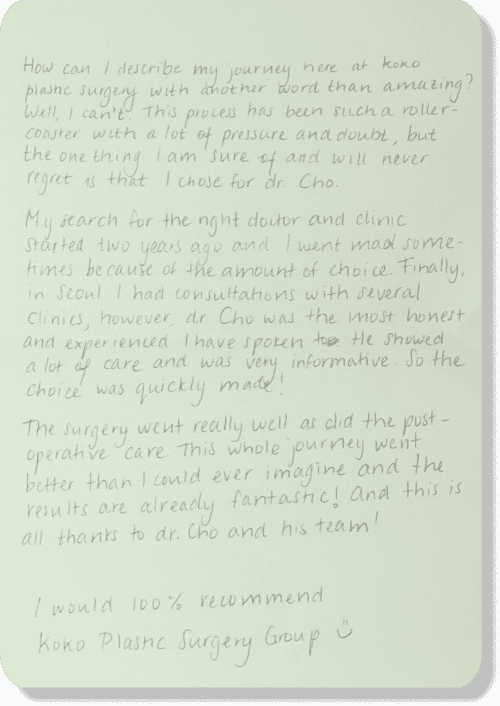 How can I describe my journey here at koko
plastic surgery with another word than amazing?
Well, I can't. This process has been such a roller-
coaster with a lot of pressure and doubt, but
the one thing i am sure of and will never
regret is that I chose for dr. Cho.
My search for the right doctor and clinic
started two years ago and I went mad some-
times because of the amount of choice. Finally,
in Seoul I had consultations with several
clinics, however, dr. Cho was the most honest
and experienced I have spoken to. He showed
a lot of care and was very informative. So the
choice was quickly made!
The surgery went really well as did the post-
operative care. This whole journey went
better than I could ever imagine and the
results are already fantastic! And this is
all thanks to dr. Cho and his team!
I would 100% recommend
Koko Plastic Surgery Group